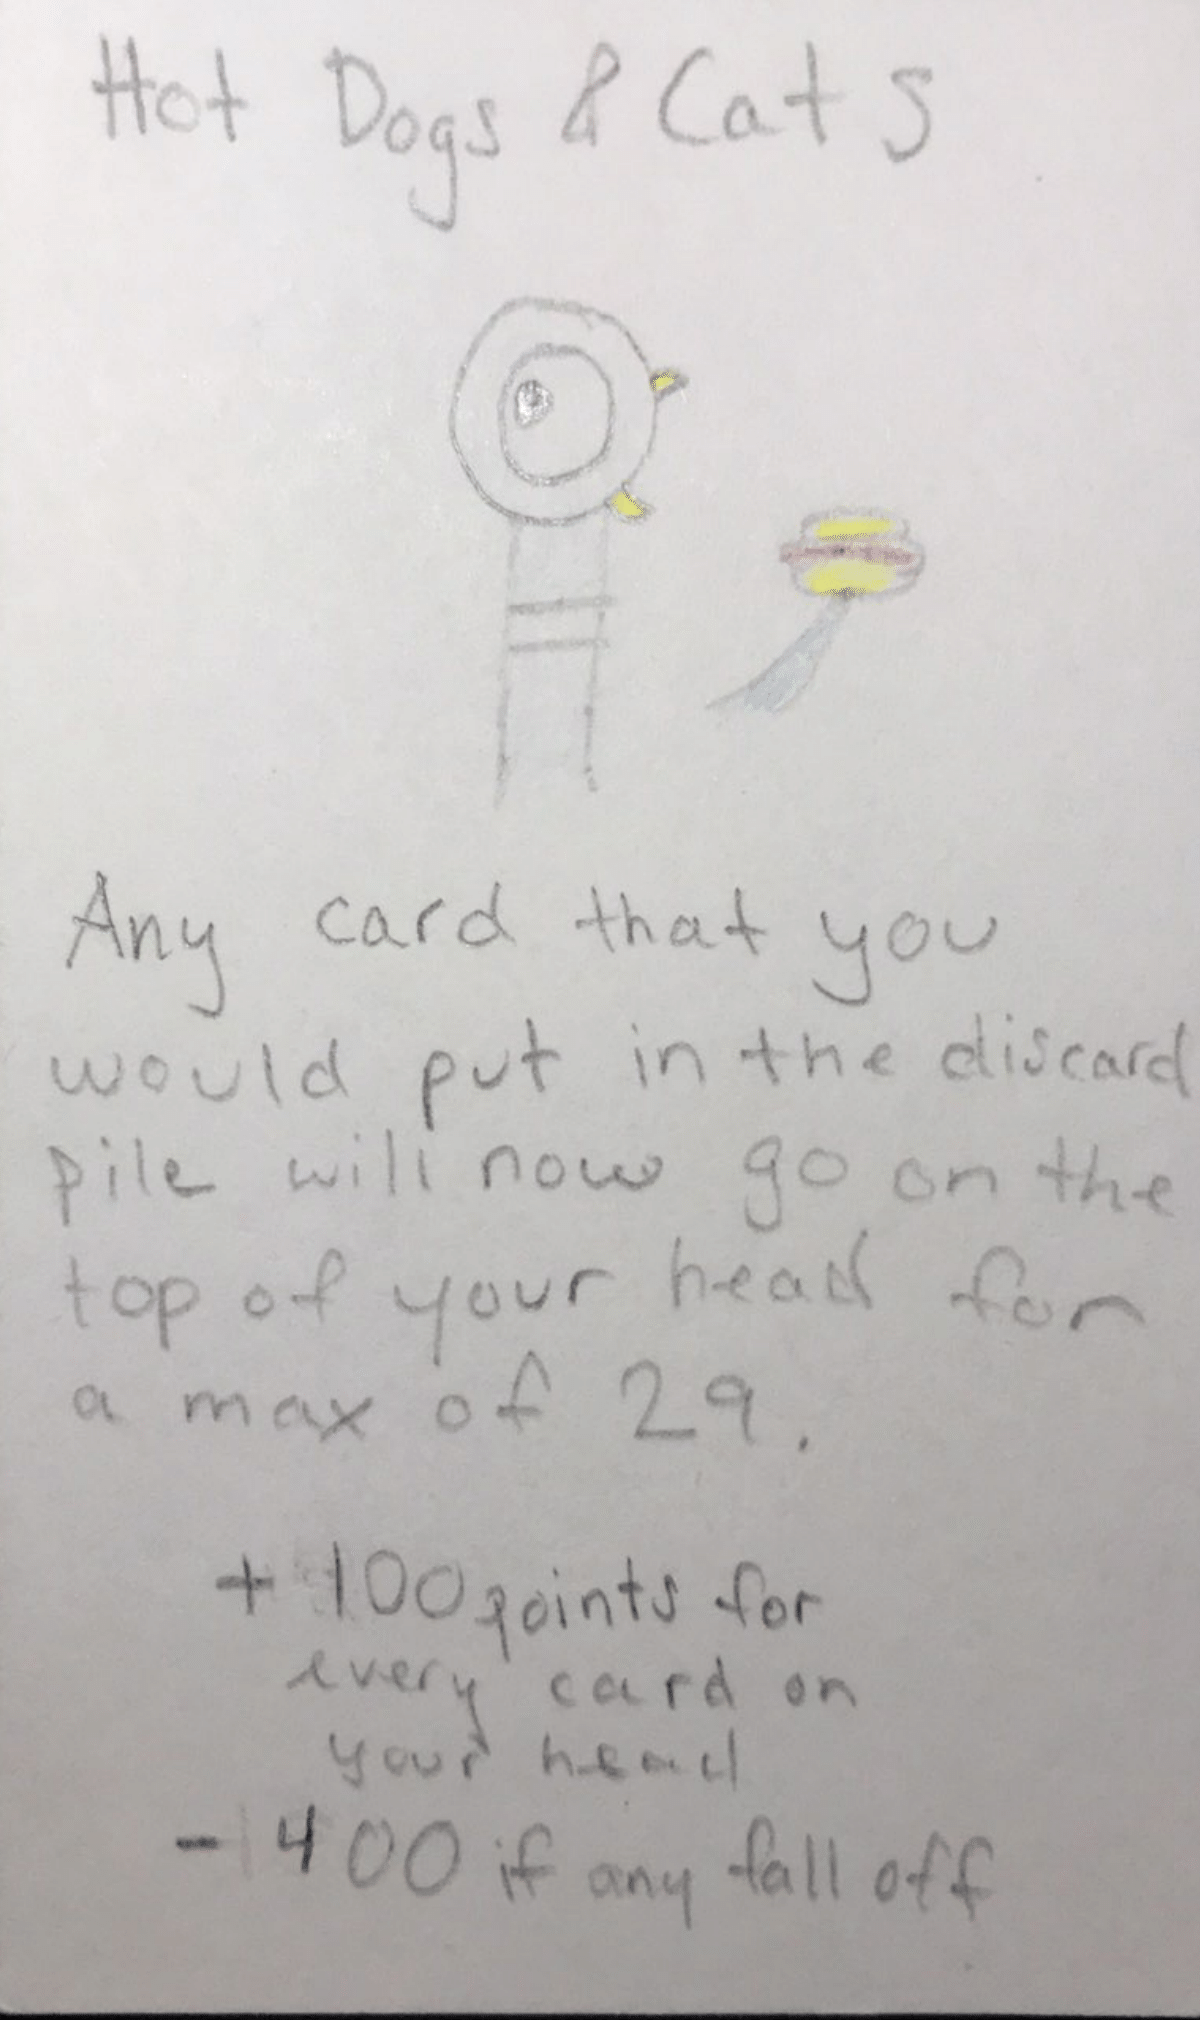 Hot Dogs & Cats
Any card that you
would put in the discard
pile will now go on the
top of your head for
a max of 29.
+ 100 points for
every card on
your head
- 400 if any fall off